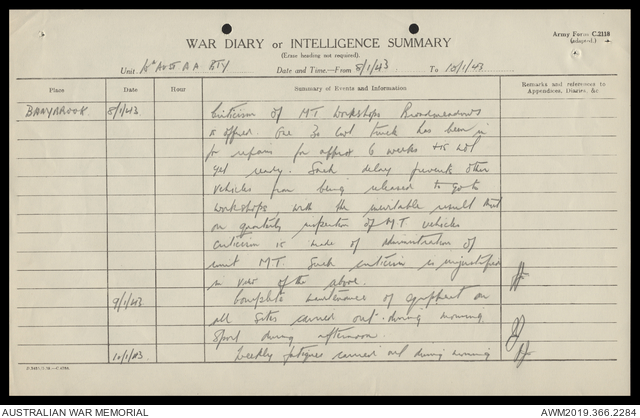 Army Form C.2118
(adapted.)
WAR DIARY or INTELLIGENCE SUMMARY
(Erase heading not required).
Unit Aust A A BTY Date and Time—From 8/1/43 To 10/1/43
Place Date Hour Summary of Events and Information Remarks and references to Appendices, Diaries, &c
8/1/43. Criticism of MT Workshops Broadmeadows
is offered. One 30 cwt truck has been in
for repairs for approx 6 weeks & is not
yet ready. Such delay prevents other
vehicles from being released to go to
workshops with the inevitable result that
on quarterly inspection of M.T vehicles
Criticism is made of administration of
unit M.T. Such criticism is unjustified
in view of the above.
9/1/43 Complete maintenance of equipment on
all sites carried out during morning.
Sport during afternoon.
10/1/43 Weekly fatigues carried out during morning
AUSTRALIAN WAR MEMORIAL
AWM2019.366.2284